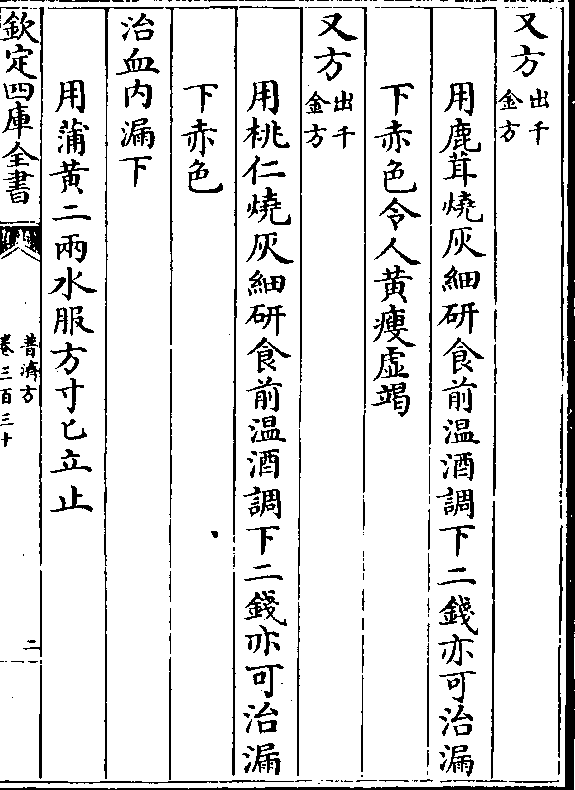 又方出千金方
用鹿茸燒灰細研食前温酒調下二錢亦可治漏
下赤色令人黄瘦虚竭
又方出千金方
用桃仁燒灰細研食前温酒調下二錢亦可治漏
下赤色
治血内漏下
用蒲黄二兩水服方寸匕立止
欽定四庫全書
普濟方
卷三百三十
二